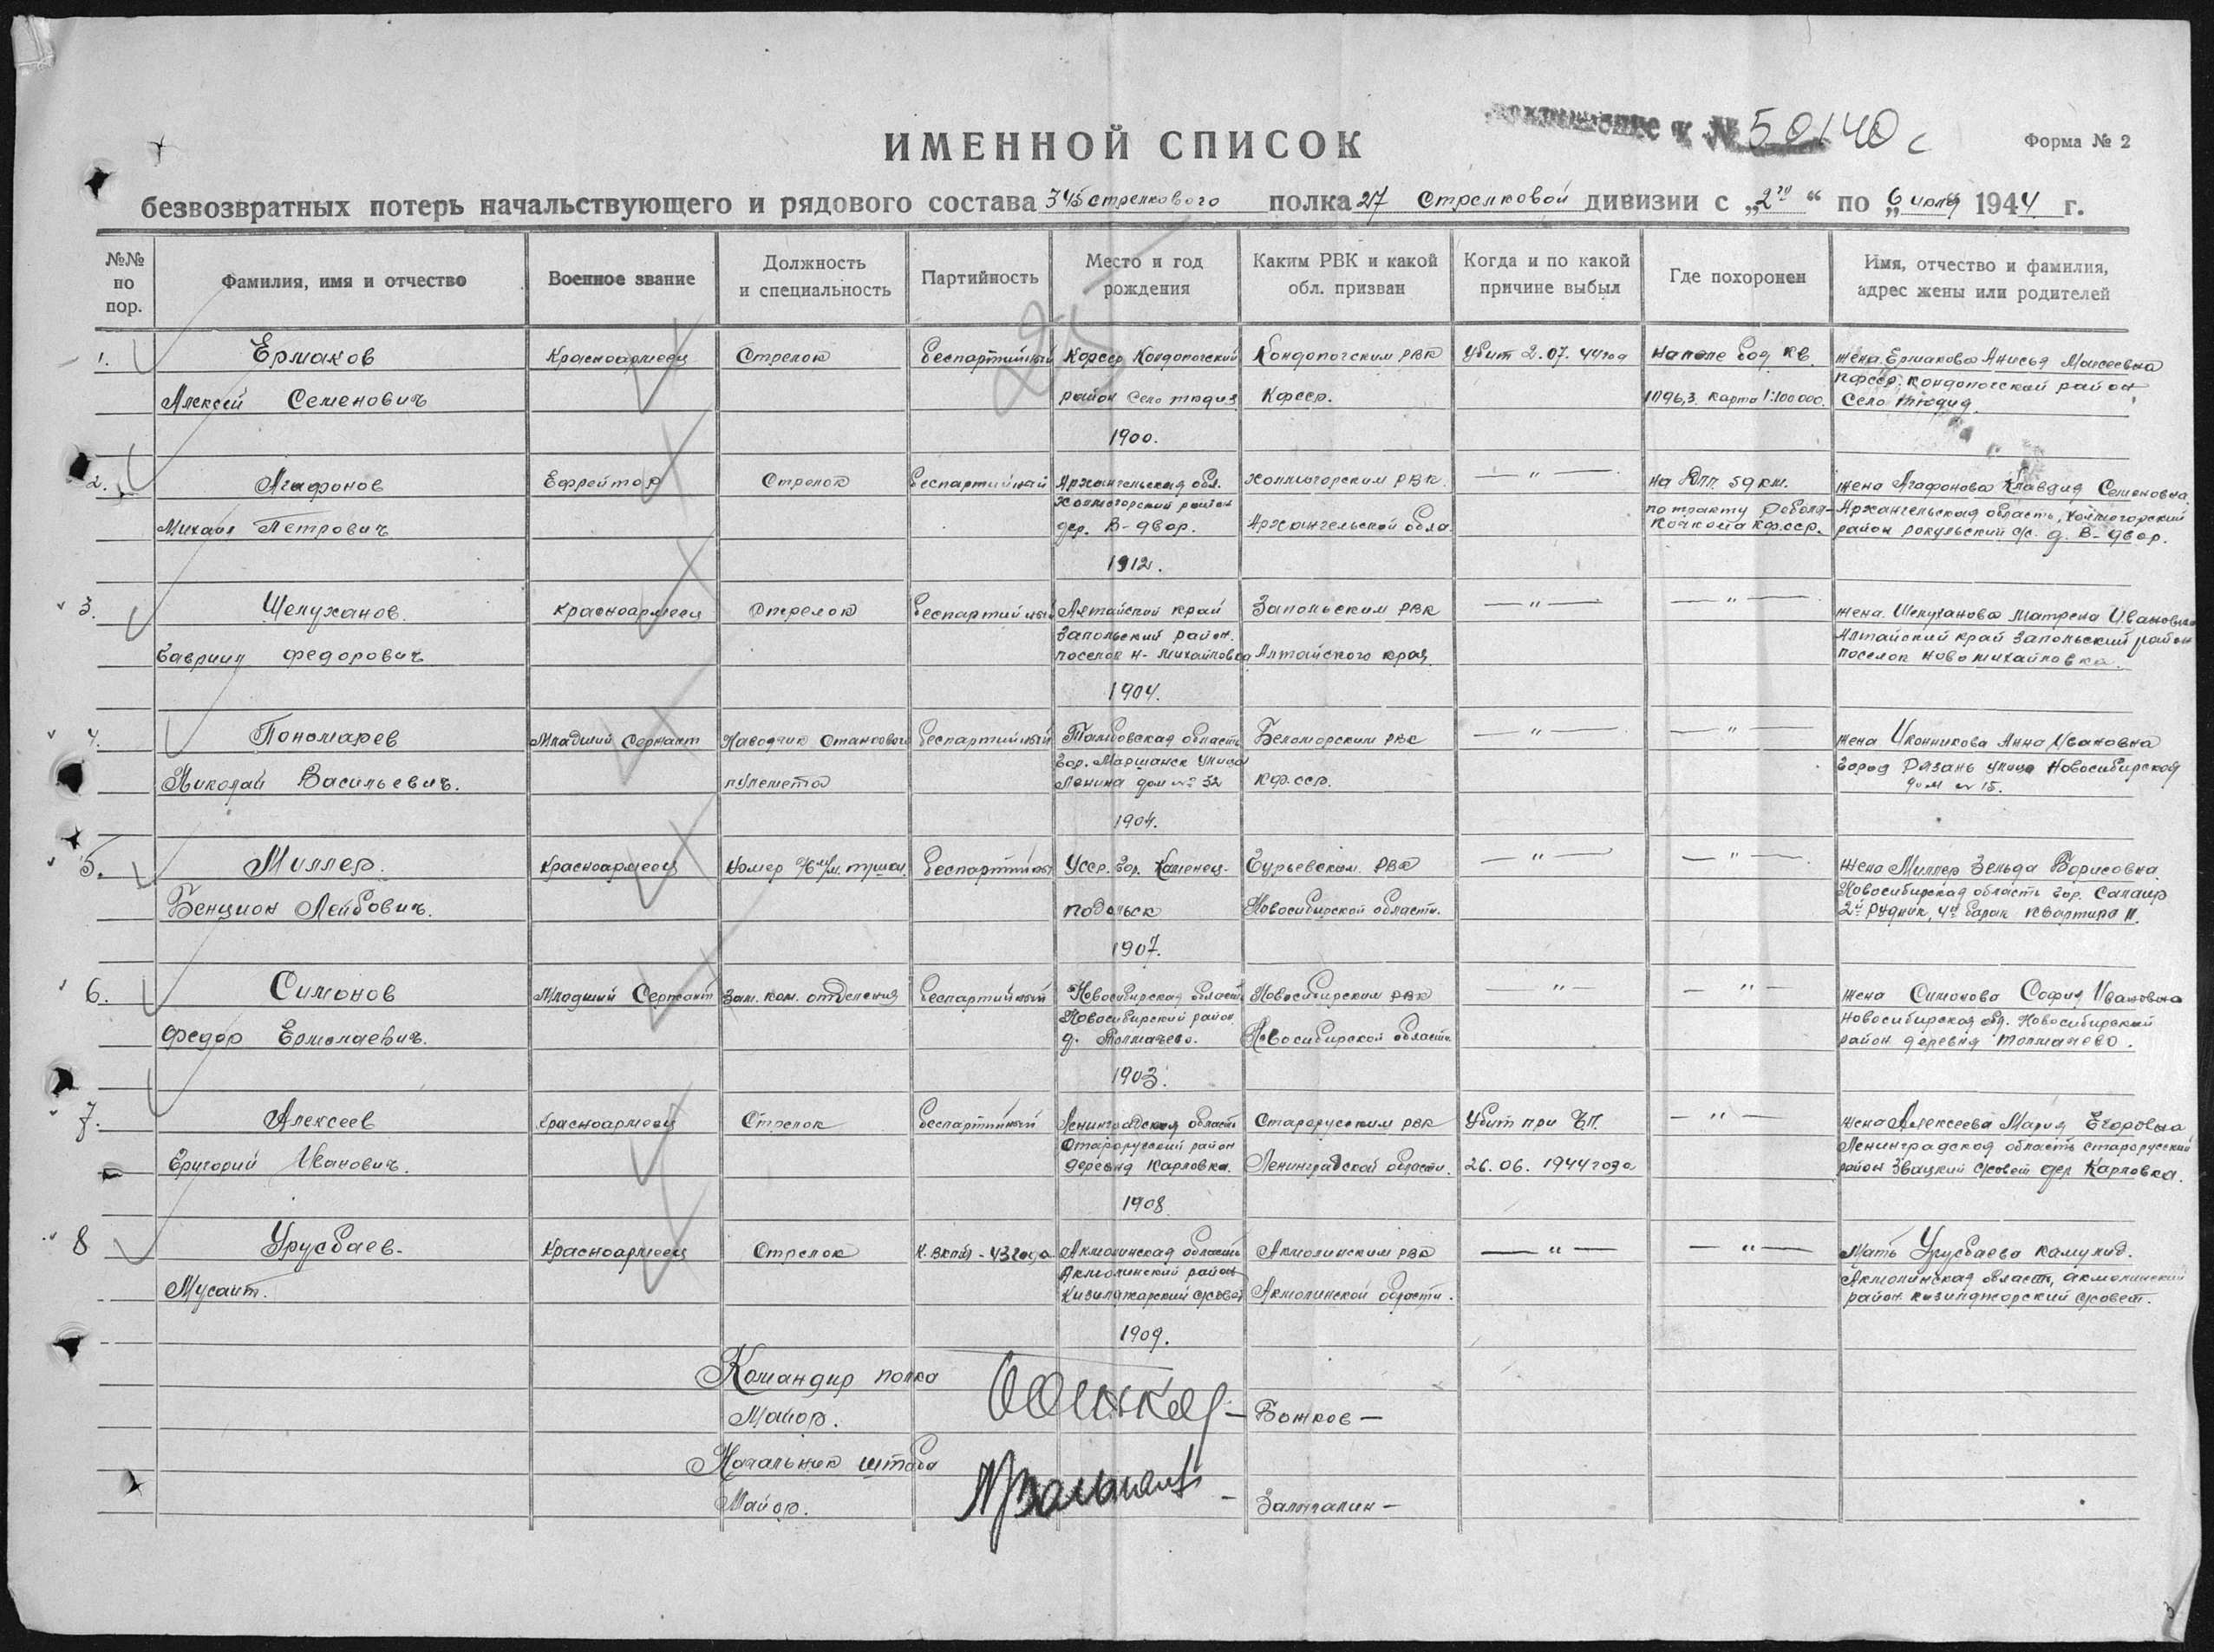 № 50140 с
Форма № 2
ИМЕННОЙ СПИСОК
безвозвратных потерь начальствующего и рядового состава 345 стрелкового полка 27 Стрелковой дивизии с „2го“ по „6 июля 1944 г.
№№ по пор.
Фамилия, имя и отчество
Военное звание
Должность и специальность
Партийность
Место и год рождения
Каким РВК и какой обл. призван
Когда и по какой причине выбыл
Где похоронен
Имя, отчество и фамилия, адрес жены или родителей
1. Ермаков Красноармеец Стрелок Беспартийный Кфсср Кондопогский Кондопогским РВК Убит 2.07.44 год На поле кв жена Ермакова Анисья Моисеевна
Алексей Семенович район село Кфсср. 1096,3 карта 1:100 000. Кфсср, Кондопогский район, село
1900.
2. Агафонов Ефрейтор Стрелок Беспартийный Архангельская обл. Холмогорским РВК. — " — на 59 км. жена Агафонова Клавдия Семеновна
Михаил Петрович Холмогорский район дер. В-двор. Архангельской обла. по тракту Реболы- Кочкома Кфсср. Архангельская область, Холмогорский район рокульский с/с. д. В-двор.
1912.
3. Шелуханов Красноармеец Стрелок Беспартийный Алтайский край РВК — " — — " — жена. Шелуханова Матрена Ивановна
Гавриил Федорович район. поселок Н-Михайловка Алтайского края. Алтайский край район поселок Новомихайловка.
1904.
4. Пономарев Младший Сержант Наводчик Станкового Беспартийный Тамбовская область Беломорским РВК — " — — " — жена Иконникова Анна Ивановна
Николай Васильевич. пулемета гор. Маршанск улица Ленина дом № 32 Кфсср. город Рязань улица Новосибирская дом № 15.
1904.
5. Миллер. Красноармеец Номер Беспартийный Усср. гор. Каменец- Гурьевским РВК — " — — " — жена Миллер Зельда Борисовна.
Бенцион Лейбович. подольск Новосибирской области. Новосибирская область гор. Салаир 2й рудник, 4й барак квартира 11.
1907.
6. Симонов Младший Сержант Зам. ком. отделения Беспартийный Новосибирская область Новосибирским РВК — " — — " — жена Симонова София Ивановна
Федор Ермолаевич. Новосибирский район. д. Толмачево. Новосибирской области. Новосибирская обл. Новосибирский район деревня Толмачево.
1903.
7. Алексеев Красноармеец Стрелок Беспартийный Ленинградская область Старорусским РВК Убит при ЧП. — " — жена Алексеева Мария Егоровна
Григорий Иванович. Старорусский район деревня Карловка. Ленинградской области. 26.06.1944 года Ленинградская область старорусский район Звацкий с/совет дер Карловка.
1908
8 Урусбаев. Красноармеец Стрелок К. ВКП/б/ - 43 года Акмолинская область Акмолинским РВК — " — — " — Мать Урусбаева
Мусаит. Акмолинский район Кизилжарский с/совет Акмолинской области. Акмолинская область, Акмолинский район с/совет.
1909.
Командир полка
Майор. — Божков —
Начальник штаба
Майор. — —